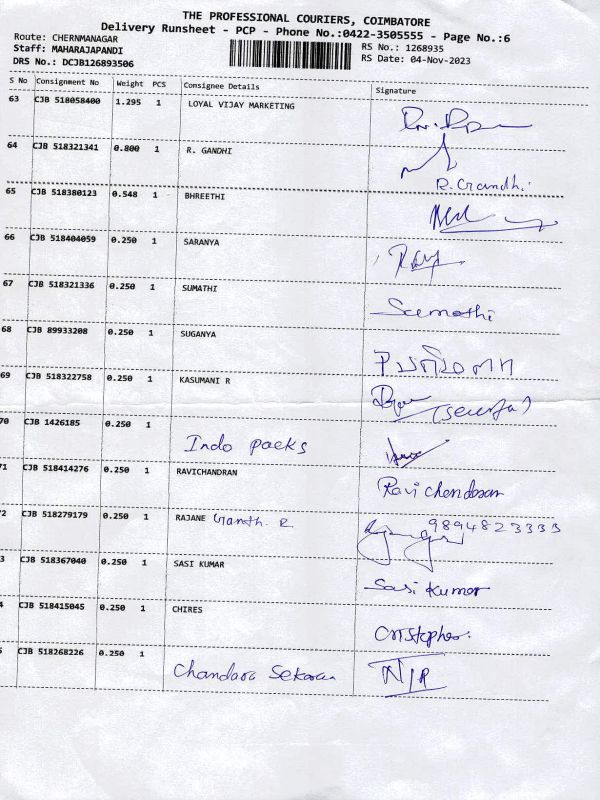 THE PROFESSIONAL COURIERS, COIMBATORE
Delivery Runsheet - PCP - Phone No.:0422-3505555 - Page No.:6
Route: CHERNMANAGAR
RS No.: 1268935
Staff: MAHARAJAPANDI
RS Date: 04-Nov-2023
DRS No.: DCJB126893506
S No Consignment No Weight PCS Consignee Details Signature
63 CJB 518058400 1.295 1 LOYAL VIJAY MARKETING
64 CJB 518321341 0.800 1 R. GANDHI
R. Gandhi.
65 CJB 518380123 0.548 1 BHREETHI
66 CJB 518404059 0.250 1 SARANYA
67 CJB 518321336 0.250 1 SUMATHI
Sumathi
68 CJB 89933208 0.250 1 SUGANYA
69 CJB 518322758 0.250 1 KASUMANI R
70 CJB 1426185 0.250 1
Indo packs
71 CJB 518414276 0.250 1 RAVICHANDRAN
Ravi chandran
2 CJB 518279179 0.250 1 RAJANE Ganth. R 9894823333
3 CJB 518367040 0.250 1 SASI KUMAR
Sasi kumar
4 CJB 518415045 0.250 1 CHIRES
Cristopher.
5 CJB 518268226 0.250 1
Chandara Sekaran N/R